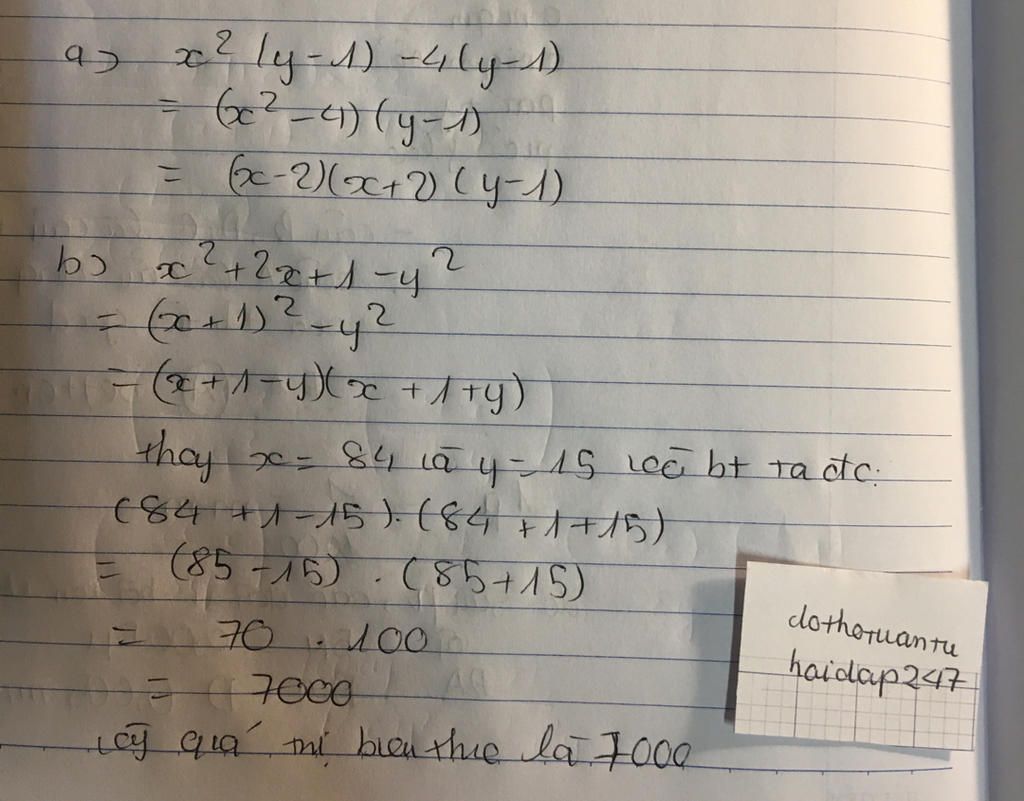 a) x² (y-1) -4(y-1)
= (x²-4)(y-1)
= (x-2)(x+2)(y-1)
b) x²+2x+1-y²
= (x+1)²-y²
= (x+1-y)(x+1+y)
thay x = 84 và y = 15 vào bt ta đc:
(84+1-15).(84+1+15)
= (85-15).(85+15)
= 70.100
= 7000
vậy quá trị biểu thức là 7000
dothotuantu
haidap247